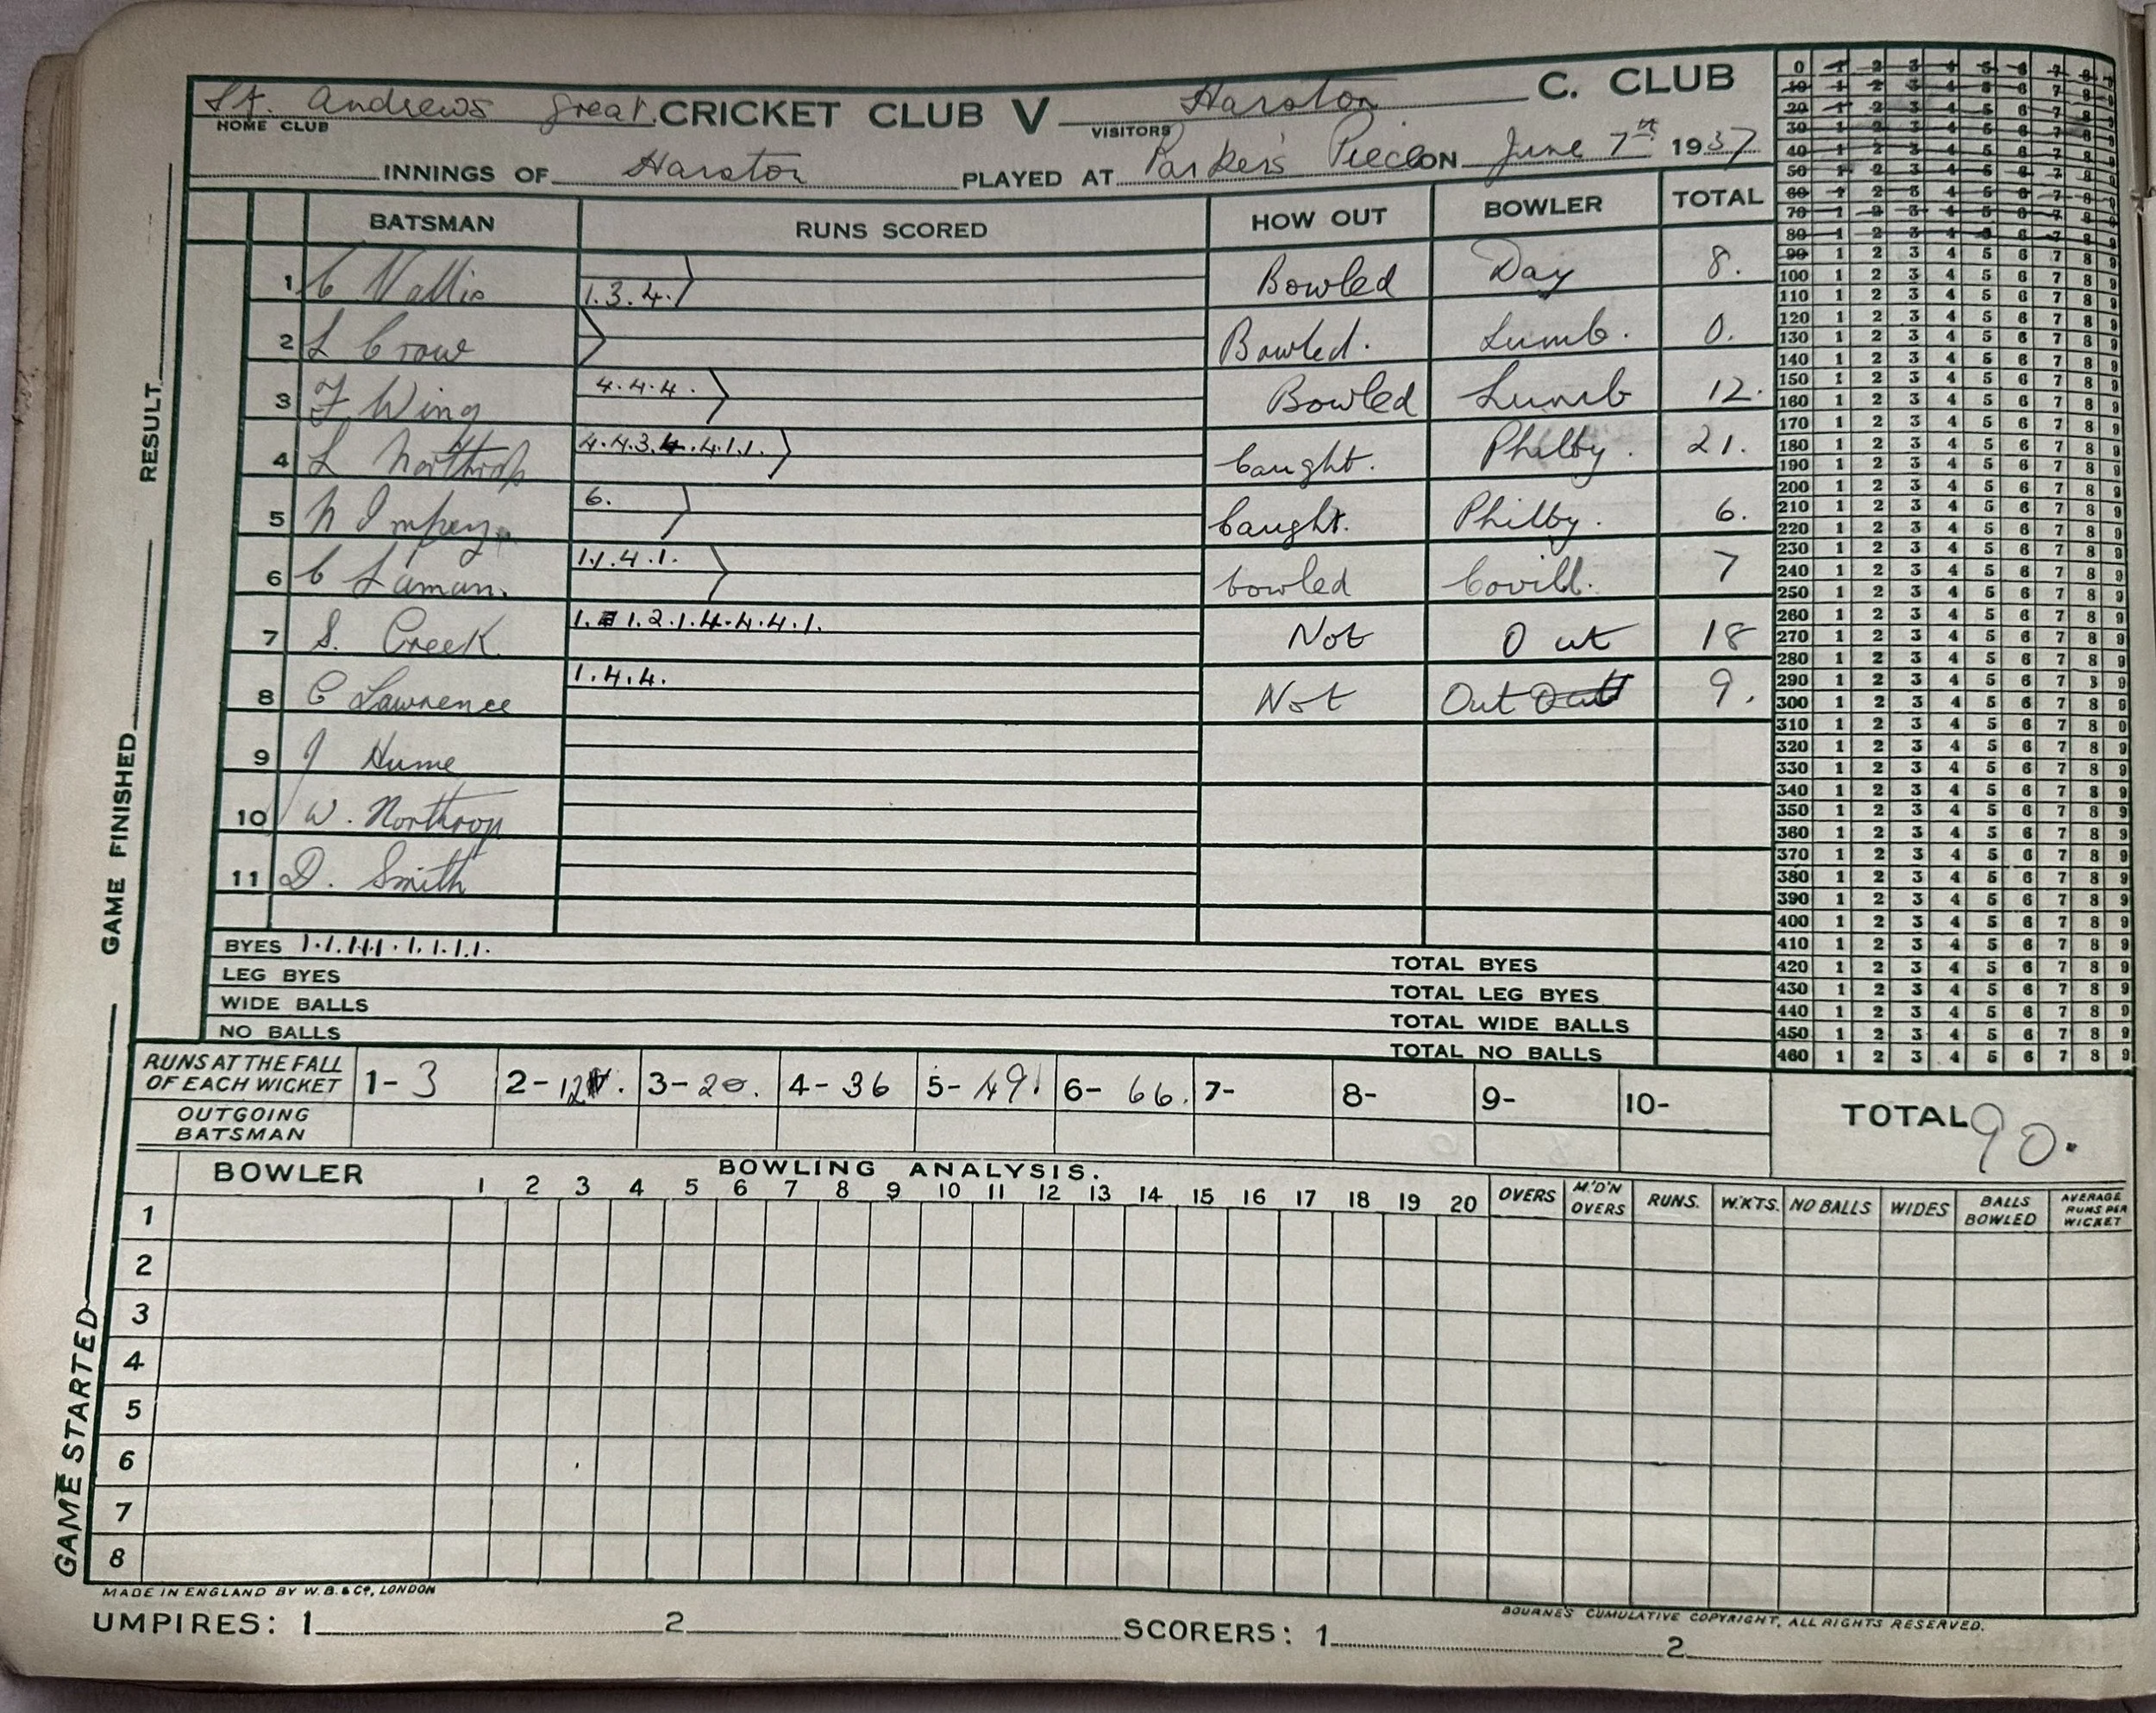 St. Andrews Great CRICKET CLUB V Harston C. CLUB
HOME CLUB VISITORS
INNINGS OF Harston PLAYED AT Parker's Piece ON June 7th 1937
BATSMAN RUNS SCORED HOW OUT BOWLER TOTAL
1 C Wallis 1.3.4. Bowled Day 8.
2 L Crow Bowled. Lumb. 0.
3 F Wing 4.4.4. Bowled Lumb 12.
4 L Northrop 4.4.3.4.4.1.1. Caught. Philby. 21.
5 N Impey. 6. Caught. Philby. 6.
6 C Laman. 1.1.4.1. bowled Covill. 7
7 S. Creek. 1. 1.2.1.4.4.4.1. Not Out 18
8 C Lawrence 1.4.4. Not Out Out 9.
9 J Hume
10 W. Northrop
11 D. Smith
BYES 1.1.1.1.1.1.1.1.1. TOTAL BYES
LEG BYES TOTAL LEG BYES
WIDE BALLS TOTAL WIDE BALLS
NO BALLS TOTAL NO BALLS
RUNS AT THE FALL
OF EACH WICKET 1- 3 2- 12. 3- 20. 4- 36 5- 49. 6- 66. 7- 8- 9- 10-
OUTGOING
BATSMAN
TOTAL 90.
BOWLER BOWLING ANALYSIS.
1 2 3 4 5 6 7 8 9 10 11 12 13 14 15 16 17 18 19 20 OVERS M'D'N OVERS RUNS. W.KTS. NO BALLS WIDES BALLS BOWLED AVERAGE RUNS PER WICKET
1
2
3
4
5
6
7
8
MADE IN ENGLAND BY W.B. & Co, LONDON
BOURNE'S CUMULATIVE COPYRIGHT, ALL RIGHTS RESERVED.
UMPIRES: 1 2 SCORERS: 1 2
GAME STARTED GAME FINISHED RESULT
0 1 2 3 4 5 6 7 8 9
10 1 2 3 4 5 6 7 8 9
20 1 2 3 4 5 6 7 8 9
30 1 2 3 4 5 6 7 8 9
40 1 2 3 4 5 6 7 8 9
50 1 2 3 4 5 6 7 8 9
60 1 2 3 4 5 6 7 8 9
70 1 2 3 4 5 6 7 8 9
80 1 2 3 4 5 6 7 8 9
90 1 2 3 4 5 6 7 8 9
100 1 2 3 4 5 6 7 8 9
110 1 2 3 4 5 6 7 8 9
120 1 2 3 4 5 6 7 8 9
130 1 2 3 4 5 6 7 8 9
140 1 2 3 4 5 6 7 8 9
150 1 2 3 4 5 6 7 8 9
160 1 2 3 4 5 6 7 8 9
170 1 2 3 4 5 6 7 8 9
180 1 2 3 4 5 6 7 8 9
190 1 2 3 4 5 6 7 8 9
200 1 2 3 4 5 6 7 8 9
210 1 2 3 4 5 6 7 8 9
220 1 2 3 4 5 6 7 8 9
230 1 2 3 4 5 6 7 8 9
240 1 2 3 4 5 6 7 8 9
250 1 2 3 4 5 6 7 8 9
260 1 2 3 4 5 6 7 8 9
270 1 2 3 4 5 6 7 8 9
280 1 2 3 4 5 6 7 8 9
290 1 2 3 4 5 6 7 8 9
300 1 2 3 4 5 6 7 8 9
310 1 2 3 4 5 6 7 8 9
320 1 2 3 4 5 6 7 8 9
330 1 2 3 4 5 6 7 8 9
340 1 2 3 4 5 6 7 8 9
350 1 2 3 4 5 6 7 8 9
360 1 2 3 4 5 6 7 8 9
370 1 2 3 4 5 6 7 8 9
380 1 2 3 4 5 6 7 8 9
390 1 2 3 4 5 6 7 8 9
400 1 2 3 4 5 6 7 8 9
410 1 2 3 4 5 6 7 8 9
420 1 2 3 4 5 6 7 8 9
430 1 2 3 4 5 6 7 8 9
440 1 2 3 4 5 6 7 8 9
450 1 2 3 4 5 6 7 8 9
460 1 2 3 4 5 6 7 8 9